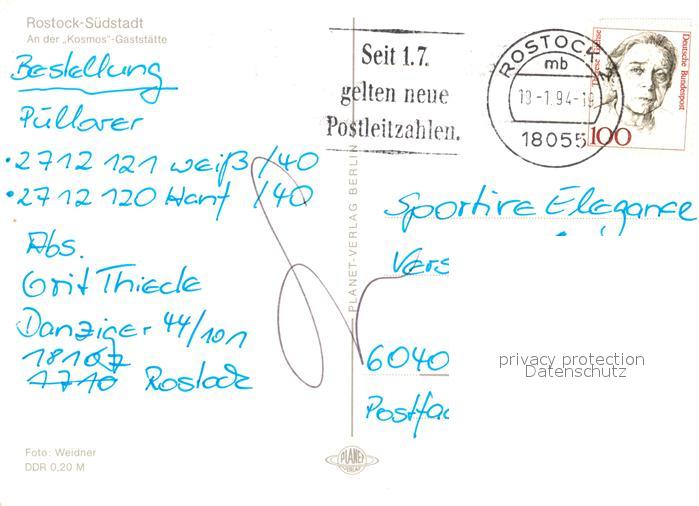 Rostock-Südstadt
An der „Kosmos"-Gaststätte
Bestellung
Pullover
• 2712 121 weiß /40
• 2712 120 Hanf /40
Abs.
Grit Thiede
Danziger 44/101
18107
1710 Rostock
Foto: Weidner
DDR 0,20 M
PLANET-VERLAG BERLIN
PLANET
VERLAG
Seit 1.7.
gelten neue
Postleitzahlen.
ROSTOCK
mb
18055
Deutsche Bundespost
100
Sportive Elegance
Vers
6040
Postfac
privacy protection
Datenschutz